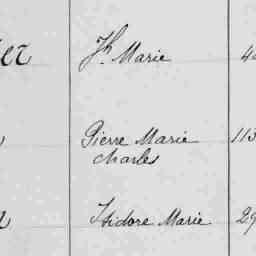 er Jh. Marie 4
Pierre Marie 113
Charles
Isidore Marie 29